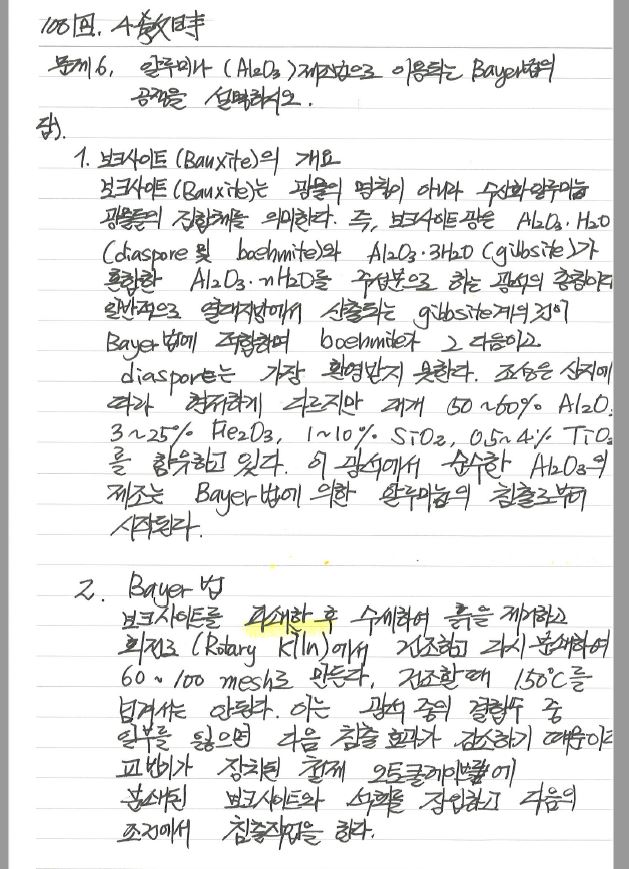 108回. 4教時
문제 6. 알루미나 (Al2O3) 제조법으로 이용되는 Bayer법의
공정을 설명하시오.
답).
1. 보크사이트(Bauxite)의 개요
보크사이트(Bauxite)는 광물의 명칭이 아니라 수산화알루미늄
광물들의 집합체를 의미한다. 즉, 보크사이트광은 Al2O3·H2O
(diaspore 및 boehmite)와 Al2O3·3H2O (gibbsite)가
혼합한 Al2O3·nH2O를 주성분으로 하는 광석의 총칭이다
일반적으로 열대지방에서 산출되는 gibbsite계의 것이
Bayer법에 적합하며 boehmite가 그 다음이고
diaspore는 가장 환영받지 못한다. 조성은 산지에
따라 현저하게 다르지만 대개 50~60% Al2O3
3~25% Fe2O3, 1~10% SiO2, 0.5~4% TiO2
를 함유하고 있다. 이 광석에서 순수한 Al2O3의
제조는 Bayer법에 의한 알루미늄의 침출로부터
시작된다.
2. Bayer 법
보크사이트를 파쇄한 후 수세하여 흙을 제거하고
회전로 (Rotary Kiln)에서 건조하고 다시 분쇄하여
60~100 mesh로 만든다. 건조할때 150℃를
넘겨서는 안된다. 이는 광석 중의 결합수 중
일부를 잃으면 다음 침출 효과가 감소하기 때문이다
교반기가 장치된 철제 오토클레이브에
분쇄된 보크사이트와 석회를 장입하고 다음의
조건에서 침출작업을 한다.